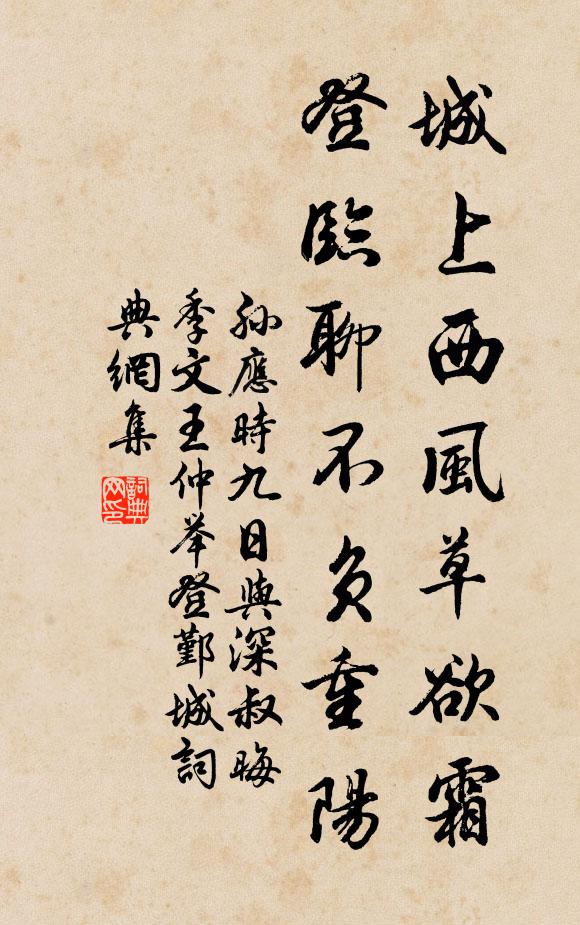 城上西風草欲霜
登臨聊不負重陽
孫應時九日與深叔晦
季文王仲举登鄞城詞
典網集
詞典
网印